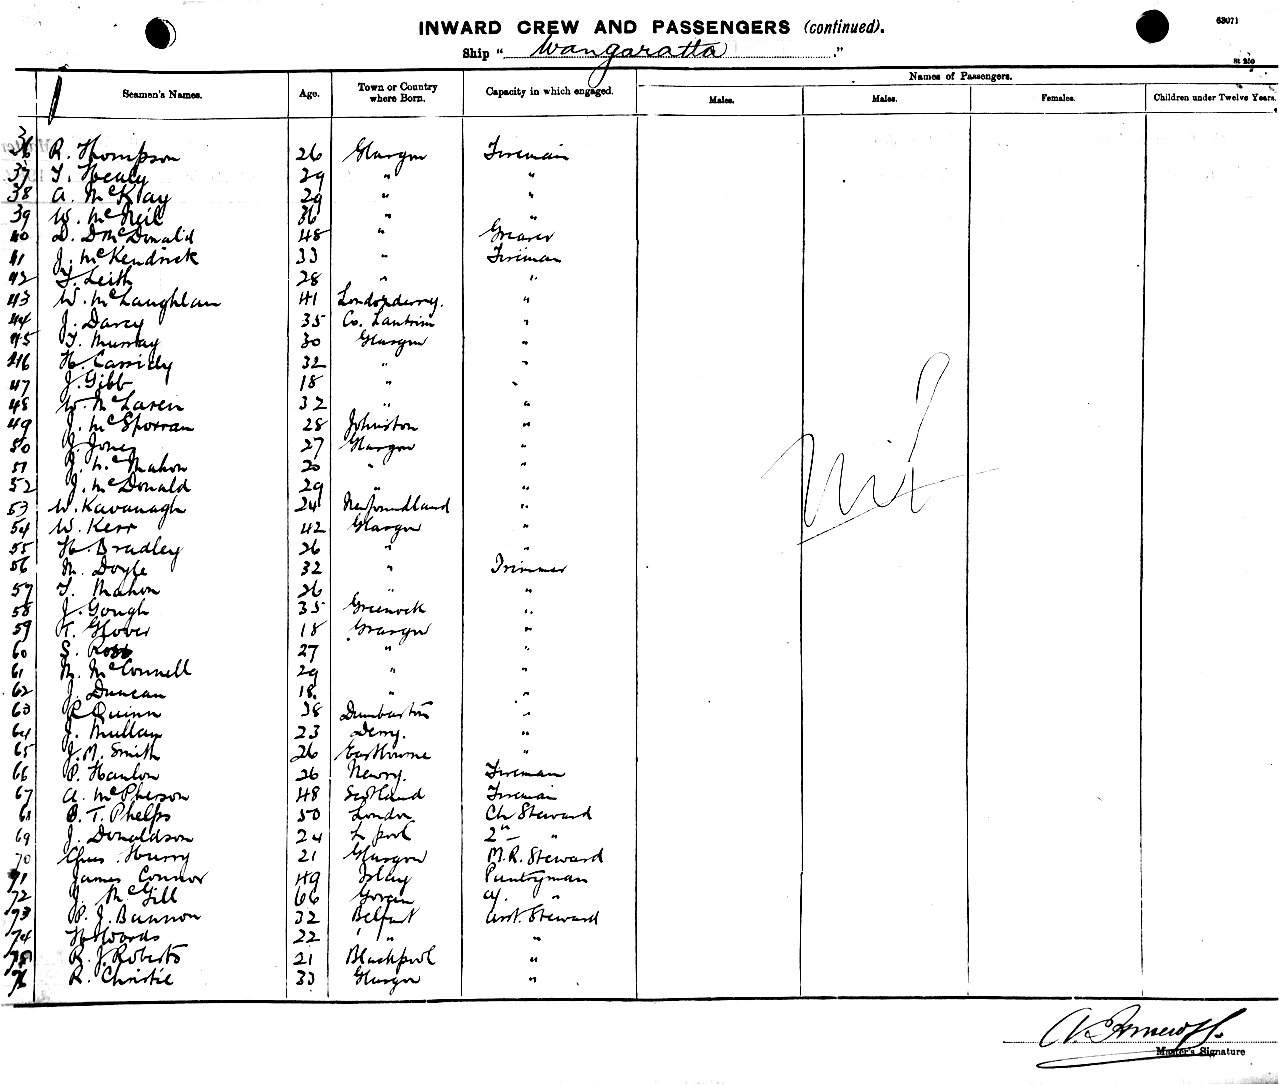 INWARD CREW AND PASSENGERS (continued).
63071
Ship " Wangaratta ."
St 230
Seamen's Names. Age. Town or Country where Born. Capacity in which engaged. Names of Passengers.
Males. Males. Females. Children under Twelve Years.
36 R. Thompson 26 Glasgow Fireman
37 T. Healy 29 " "
38 A. McKlay 29 " "
39 W. McNeil 36 " "
40 D. McDonald 48 " Greaser
41 J. McKendrick 33 " Fireman
42 T. Leith 28 " "
43 W. McLaughlan 41 Londonderry. "
44 J. Darcy 35 Co. Lantrim "
45 T. Murray 30 Glasgow "
46 H. Cassidy 32 " "
47 J. Gibb 18 " "
48 W. McLaren 32 " "
49 J. McSporran 28 Johnston "
50 J. Jones 27 Glasgow "
51 J. McMahon 20 " "
52 J. McDonald 29 " "
53 W. Kavanagh 24 Newfoundland "
54 W. Kerr 42 Glasgow "
55 H. Bradley 26 " "
56 M. Doyle 32 " Trimmer
57 T. Mahon 26 " "
58 J. Gough 35 Greenock "
59 T. Glover 18 Glasgow "
60 S. Ross 27 " "
61 M. McConnell 29 " "
62 J. Duncan 18. " "
63 P. Quinn 38 Dumbarton "
64 J. Mullan 23 Derry. "
65 J. M. Smith 26 Eastbourne "
66 P. Hanlon 26 Newry. Fireman
67 A. McPherson 48 Scotland Fireman
68 B. T. Phelps 50 London Ch Steward
69 J. Donaldson 24 L'pool 2nd "
70 Chas Hurry 21 Glasgow M.R. Steward
71 James Connor 49 Islay Pantryman
72 J. McGill 66 Govan "
73 P. J. Bannon 32 Belfast Asst. Steward
74 H Woods 22 " "
75 R. J. Roberts 21 Blackpool "
76 R. Christie 33 Glasgow "
Nil
Master's Signature